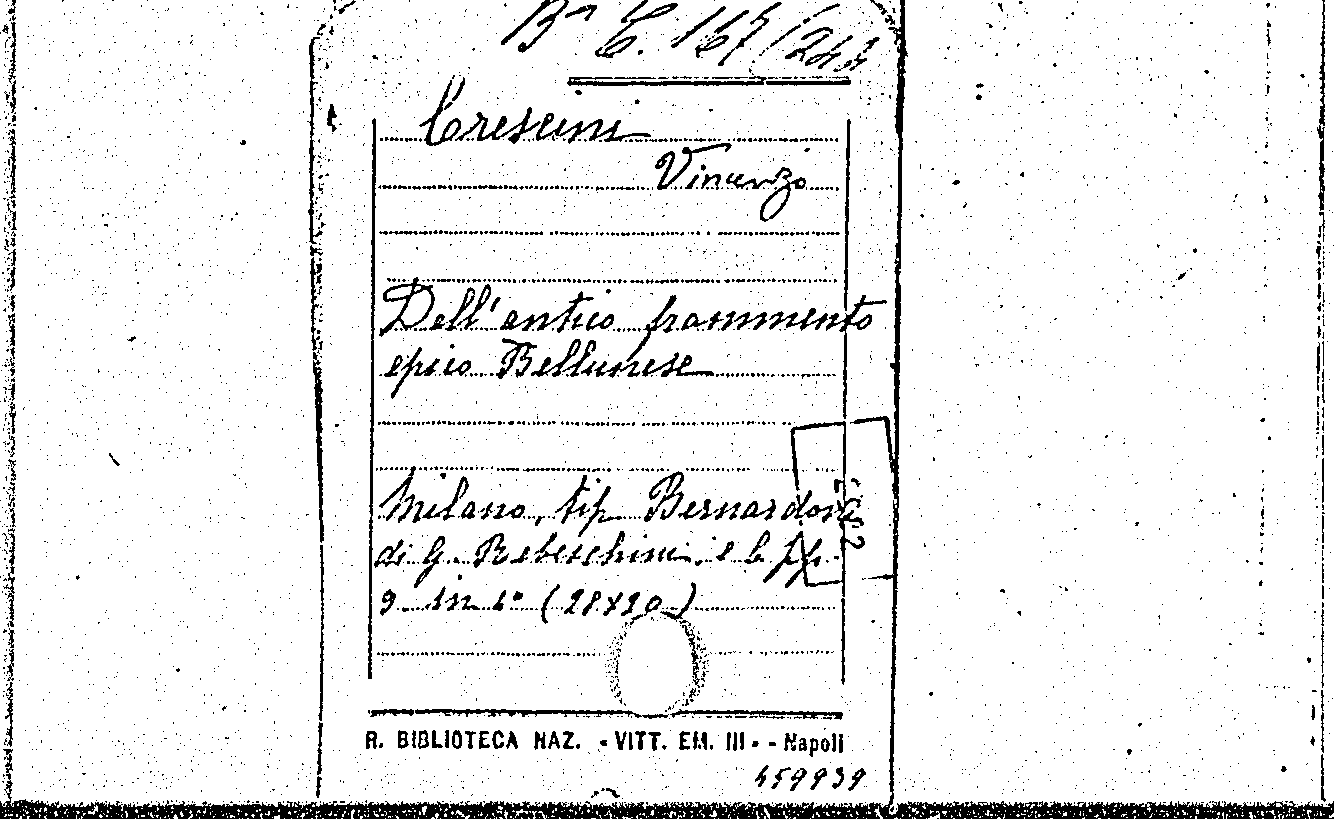 Crescini
Vincenzo
Dell'antico frammento
epico Bellunese
Milano, tip. Bernardoni
di G. Rebeschini e C. pp.
9 in 4° (28x20)
R. BIBLIOTECA NAZ. - VITT. EM. III - - Napoli
459939